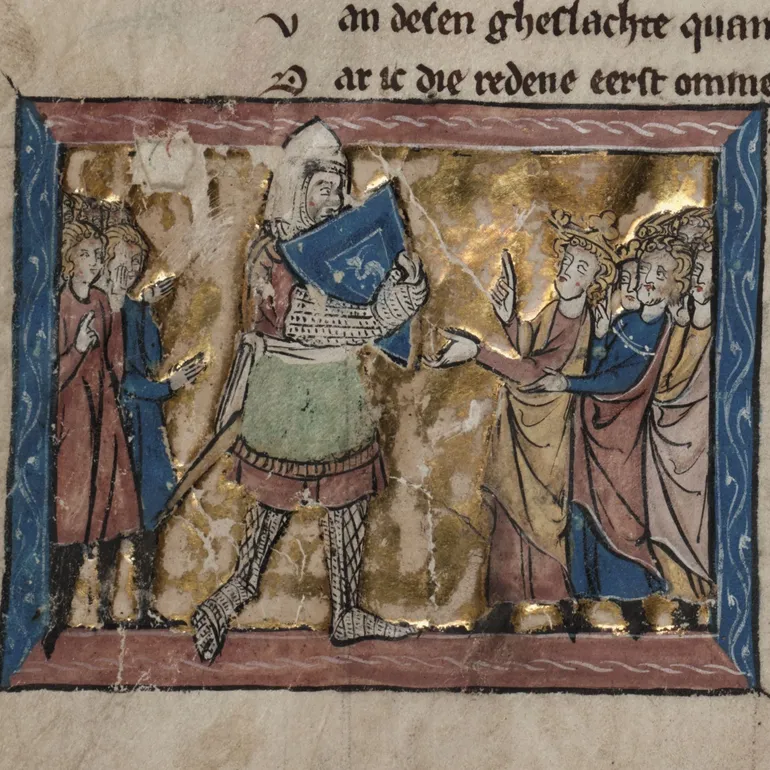 V an desen gheslachte quam
D ar ic die redene eerst omme